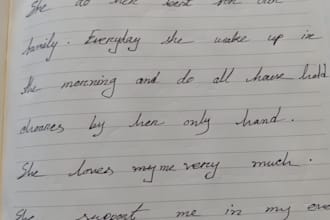 She do her best for our
family. Everyday she wake up in
the morning and do all house hold
choares by her only hand.
She loves myme very much.
She support me in my eve